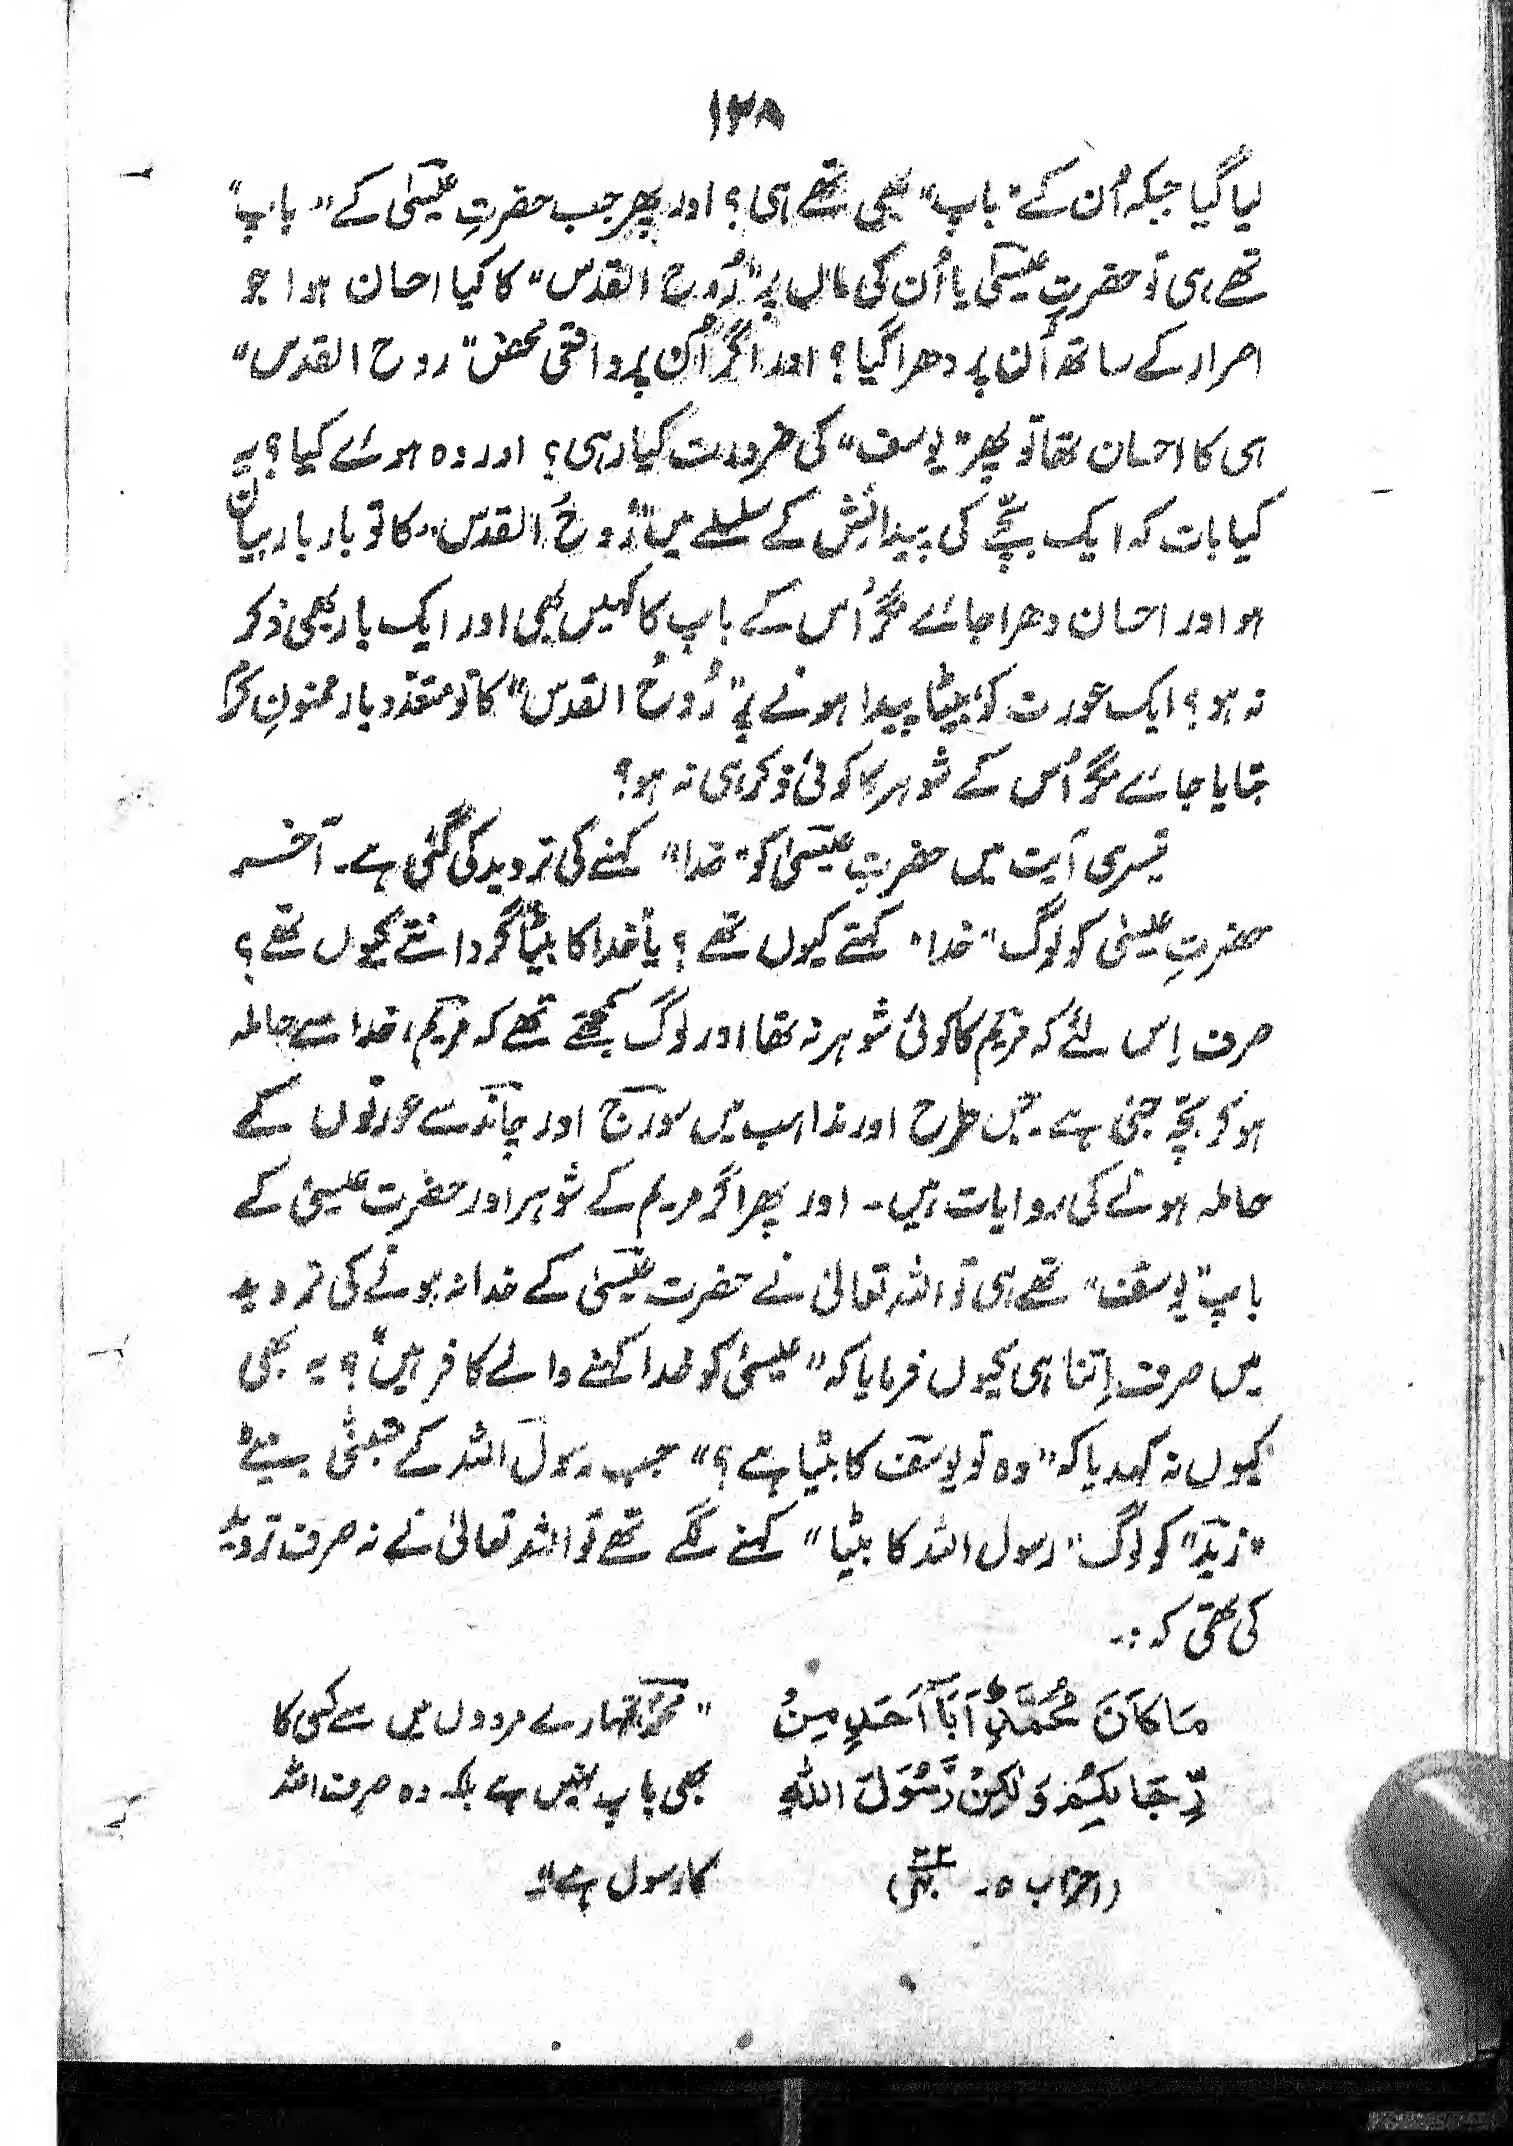 ۱۲۸
لیا گیا جبکہ اُن کے "باپ" بھی تھے ہی؟ اور پھر جب حضرتِ عیسیٰ کے "باپ"
تھے ہی تو حضرتِ عیسیٰ یا اُن کی ماں پر "رُوح القدس" کا کیا احسان ہوا جو
اصرار کے ساتھ اُن پر دھرا گیا؟ اور اگر اُن پر واقعی محض "روح القدس"
ہی کا احسان تھا تو پھر "یوسف" کی ضرورت کیا رہی؟ اور وہ ہوئے کیا؟ یہ
کیا بات کہ ایک بچّے کی پیدائش کے سلسلے میں "رُوحُ القدس" کا تو بار بار بیان
ہو اور احسان دھرا جائے مگر اُس کے باپ کا کہیں بھی اور ایک بار بھی ذکر
نہ ہو؟ ایک عورت کو بیٹا پیدا ہونے پر "رُوحُ القدس" کا تو متعدّد بار ممنونِ کرم
بتایا جائے مگر اُس کے شوہر کا کوئی ذکر ہی نہ ہو؟
تیسری آیت میں حضرتِ عیسیٰ کو "خدا" کہنے کی تردید کی گئی ہے۔ آخر
حضرتِ عیسیٰ کو لوگ "خدا" کہتے کیوں تھے؟ یا خدا کا بیٹا گردانتے کیوں تھے؟
صرف اِس لئے کہ مریم کا کوئی شوہر نہ تھا اور لوگ سمجھتے تھے کہ مریم، خدا سے حاملہ
ہو کر بچّہ جنی ہے۔ جس طرح اور مذاہب میں سورج اور چاند سے عورتوں کے
حاملہ ہونے کی روایات ہیں۔ اور پھر اگر مریم کے شوہر اور حضرت عیسیٰ کے
باپ "یوسف" تھے ہی تو اللہ تعالیٰ نے حضرت عیسیٰ کے خدا نہ ہونے کی تردید
میں صرف اِتنا ہی کیوں فرمایا کہ "عیسیٰ کو خدا کہنے والے کافر ہیں"؟ یہ بھی
کیوں نہ کہدیا کہ "وہ تو یوسف کا بیٹا ہے؟" جب رسول اللہ کے متبنّٰی بیٹے
"زید" کو لوگ "رسول اللہ کا بیٹا" کہنے لگے تھے تو اللہ تعالیٰ نے نہ صرف تردید
کی تھی کہ :۔
مَا كَانَ مُحَمَّدٌ اَبَآ اَحَدٍ مِنْ
رِّجَالِكُمْ وَلٰكِنْ رَّسُوْلَ اللّٰهِ
(احزاب ۵۔ ۳۳)
"محمدؐ تمہارے مردوں میں سے کسی کا
بھی باپ نہیں ہے بلکہ وہ صرف اللہ
کا رسول ہے"۔